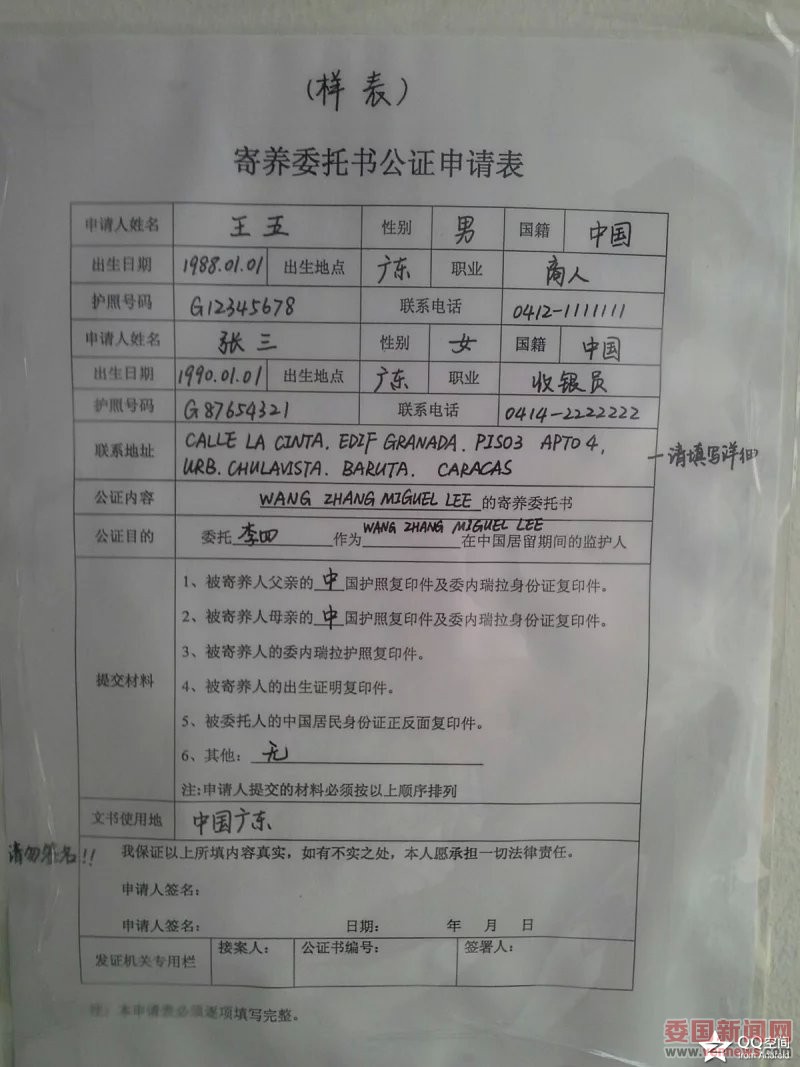 （样 表）
寄养委托书公证申请表
申请人姓名 王五 性别 男 国籍 中国
出生日期 1988.01.01 出生地点 广东 职业 商人
护照号码 G12345678 联系电话 0412-1111111
申请人姓名 张三 性别 女 国籍 中国
出生日期 1990.01.01 出生地点 广东 职业 收银员
护照号码 G87654321 联系电话 0414-2222222
联系地址 CALLE LA CINTA. EDIF GRANADA. PISO3 APTO 4,
URB. CHULAVISTA. BARUTA. CARACAS
—请填写详细
公证内容 WANG ZHANG MIGUEL LEE 的寄养委托书
公证目的 委托 李四 作为 WANG ZHANG MIGUEL LEE 在中国居留期间的监护人
提交材料
1、被寄养人父亲的 中 国护照复印件及委内瑞拉身份证复印件。
2、被寄养人母亲的 中 国护照复印件及委内瑞拉身份证复印件。
3、被寄养人的委内瑞拉护照复印件。
4、被寄养人的出生证明复印件。
5、被委托人的中国居民身份证正反面复印件。
6、其他: 无
注:申请人提交的材料必须按以上顺序排列
文书使用地 中国广东
请勿签名!!
我保证以上所填内容真实，如有不实之处，本人愿承担一切法律责任。
申请人签名:
申请人签名: 日期: 年 月 日
发证机关专用栏 接案人: 公证书编号: 签署人:
注：本申请表必须逐项填写完整。
委国新闻网
www.venews.net
QQ空间
from Android